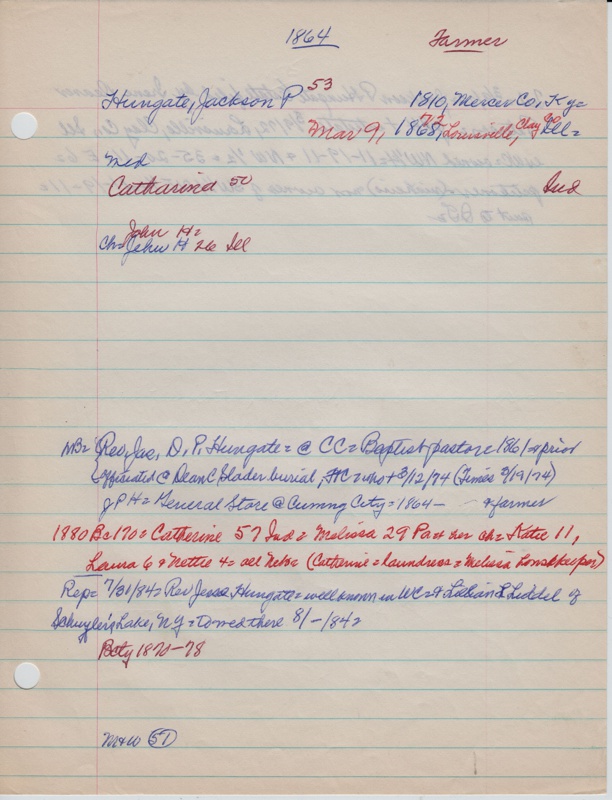 1864 Farmer
Hungate, Jackson P 53 1810, Mercer Co, Ky=
Mar 9, 1868, 72 Louisville, Clay Co Ill=
med
Catharine 50 Ind
John H=
ch= John H 26 Ill
NB= Rev, Jas, D, P, Hungate= @ CC= Baptist pastor= 1861 & prior
officiated @ Dean C Slader burial, HC= who + 3/12/74 (Times 3/19/74)
J P H= General Store @ Cuming City= 1864- & farmer
1880 Bc 170= Catherine 57 Ind= Melissa 29 Pa & her ch= Katie 11,
Laura 6 & Nettie 4= all Nebr= (Catherine= laundress= Melissa housekeeper)
Rep= 7/31/84= Rev Jesse Hungate= well known in WC= & Lillian L Liddel of
Schuyler's Lake, NY= to wed there 8/-/84=
Bcty 1870-78
M&W 57